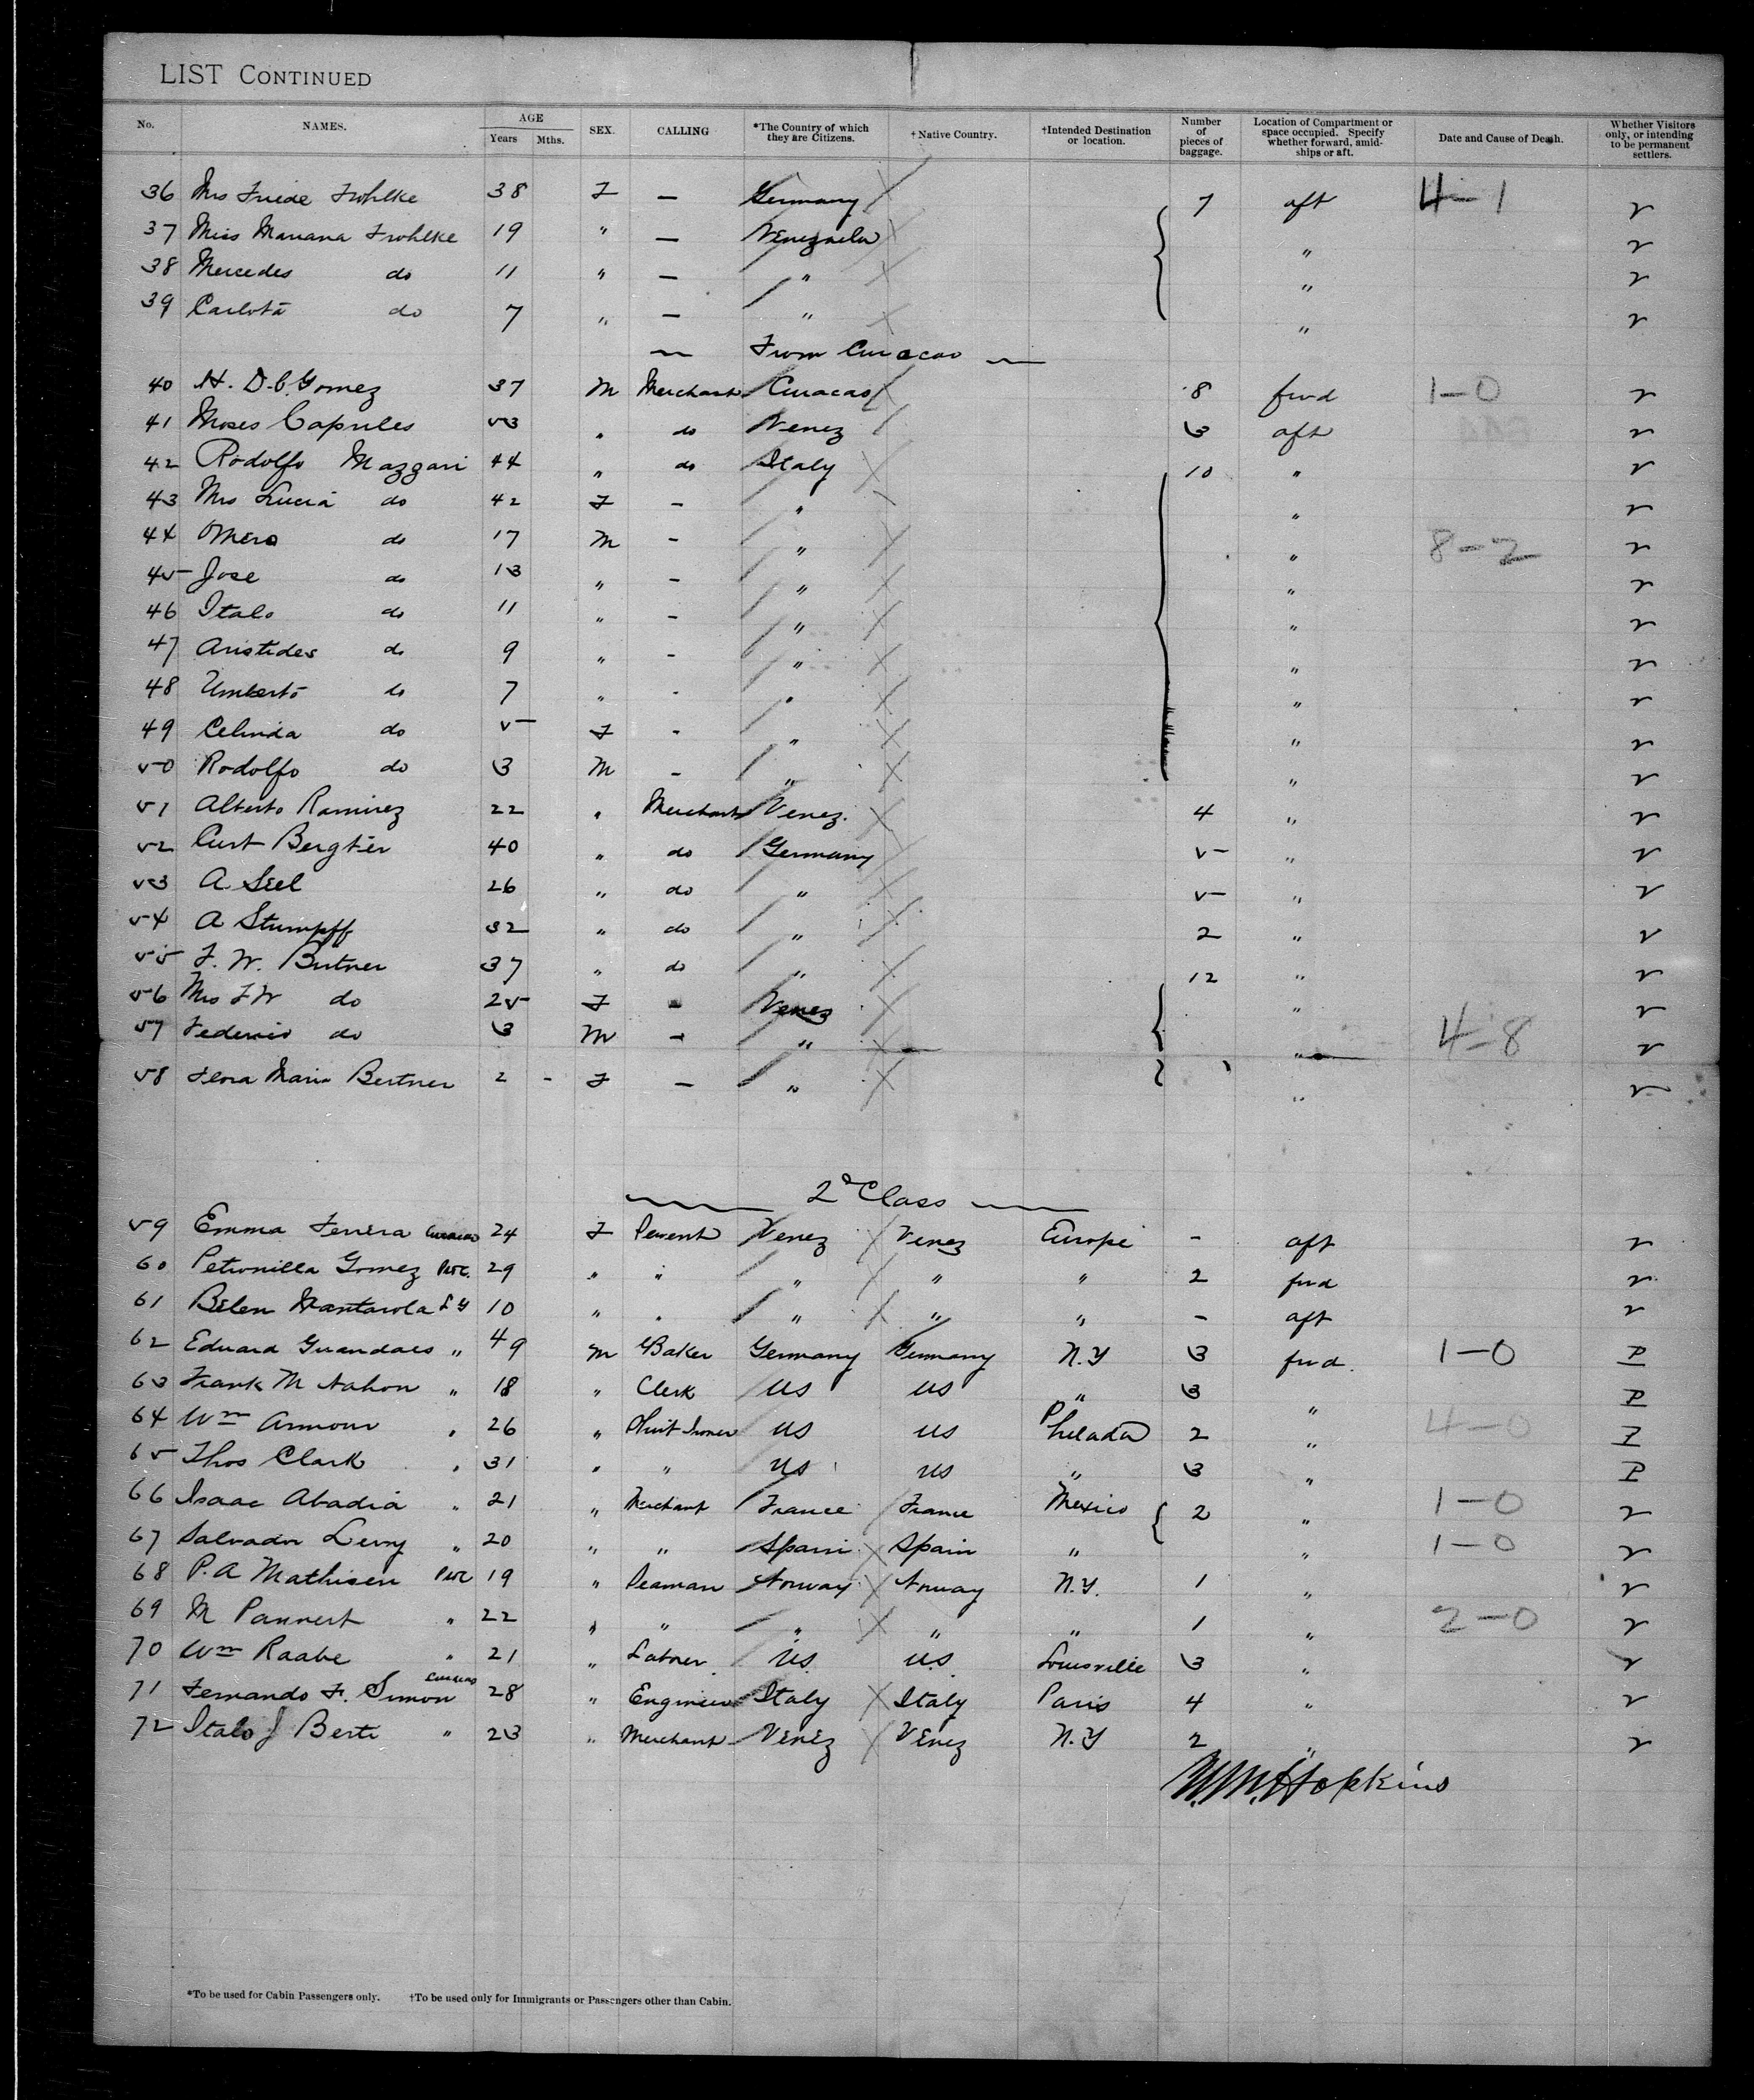 LIST CONTINUED
No. NAMES. AGE Years Mths. SEX. CALLING *The Country of which they are Citizens. †Native Country. †Intended Destination or location. Number of pieces of baggage. Location of Compartment or space occupied. Specify whether forward, amidships or aft. Date and Cause of Death. Whether Visitors only, or intending to be permanent settlers.
36 Mrs Friede Frohlke 38 F — Germany 7 aft 4-1 v
37 Miss Mariana Frohlke 19 " — Venezuela " v
38 Mercedes do 11 " — " " v
39 Carlota do 7 " — " " v
— From Curacao —
40 H. D.C. Gomez 37 M Merchant Curacao 8 fwd 1-0 v
41 Moses Capriles 53 " do Venez 3 aft v
42 Rodolfo Mazzari 44 " do Italy 10 " v
43 Mrs Lucia do 42 F - " " v
44 Omero do 17 M - " " 8-2 v
45 Jose do 13 " - " " v
46 Italo do 11 " - " " v
47 Aristides do 9 " - " " v
48 Umberto do 7 " - " " v
49 Celinda do 5 F - " " v
50 Rodolfo do 3 M - " " v
51 Alberto Ramirez 22 " Merchant Venez. 4 " v
52 Curt Bergter 40 " do Germany 5 " v
53 A. Seel 26 " do " 5 " v
54 A Stumpff 32 " do " 2 " v
55 F. W. Butner 37 " do " 12 " v
56 Mrs F W do 25 F - Venez " v
57 Federico do 3 M - " " 4-8 v
58 Flora Maria Bertner 2 - F — " " v
2d Class
59 Emma Ferrera Curacao 24 F Servent Venez Venez Europe - aft v
60 Petronilla Gomez 29 " " " " " 2 fwd v
61 Belen Mantarola L G 10 " " " " " - aft v
62 Eduard " 49 M Baker Germany Germany N.Y 3 fwd. 1-0 P
63 Frank M Nahon " 18 " Clerk US US " 3 " P
64 Wm Armour " 26 " US US Philada 2 " 4-0 P
65 Thos Clark " 31 " " US US " 3 " P
66 Isaac Abadia " 21 " Merchant France France Mexico 2 " 1-0 v
67 Salvador Levy " 20 " " Spain Spain " " 1-0 v
68 P. A Mathisen 19 " Seaman Norway Norway N.Y. 1 " v
69 M Pannert " 22 " " " " " 1 " 2-0 v
70 Wm Raabe " 21 " Laborer U.S. U.S. Louisville 3 " v
71 Fernando F. Simon Curacao 28 " Engineer Italy Italy Paris 4 " v
72 Italo J Berti " 23 " Merchant Venez Venez N.Y 2 " v
W.M. Hopkins
*To be used for Cabin Passengers only. †To be used only for Immigrants or Passengers other than Cabin.